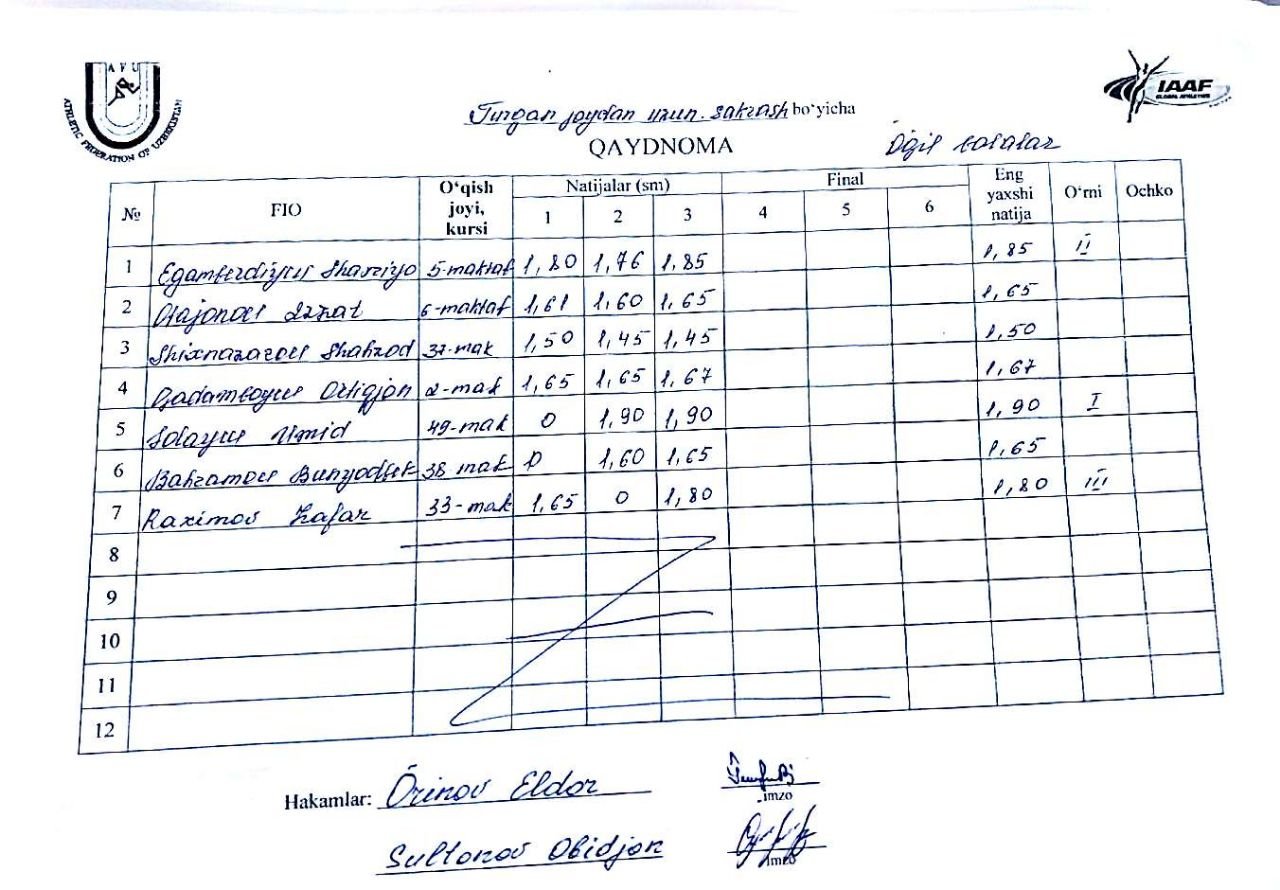 AVU
ATHLETIC FEDERATION OF UZBEKISTAN
IAAF
GLOBAL ATHLETICS
Turgan joydan uzun. sakrash bo'yicha
QAYDNOMA
O'g'il bolalar
№ FIO O'qish joyi, kursi Natijalar (sm) Final Eng yaxshi natija O'rni Ochko
1 2 3 4 5 6
1 Egamberdiyev Shaxriyo 5-maktab 1,80 1,76 1,85 1,85 II
2 Otajonov Izzat 6-maktab 1,61 1,60 1,65 1,65
3 Shixnazarov Shahzod 37-mak 1,50 1,45 1,45 1,50
4 Qadamboyev Ortiqjon 2-mak 1,65 1,65 1,67 1,67
5 Umid 49-mak 0 1,90 1,90 1,90 I
6 Bahramov Bunyodbek 38 mak 0 1,60 1,65 1,65
7 Raximov Zafar 33-mak 1,65 0 1,80 1,80 III
8
9
10
11
12
Hakamlar: Õrinov Eldor
imzo
Sultonov Obidjon
imzo